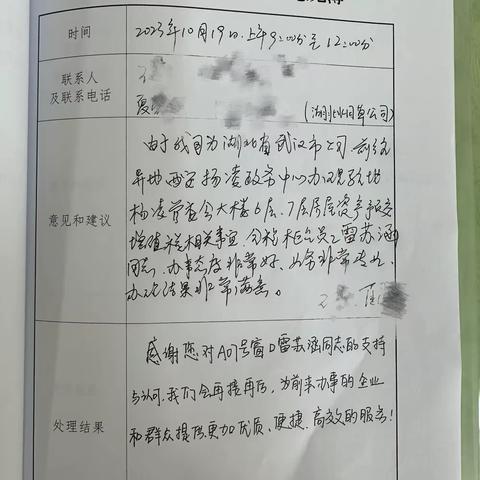 时间
2023年10月19日.上午9:00分至12:00分
联系人
及联系电话
(湖北
公司)
意见和建议
由于我司为湖北省武汉市公司.前往
异地西安杨凌政务中心办理
杨凌管委会大楼6层、7层房屋资产
增值税相关事宜.
雷苏涵
同志、办事态度非常好、业务非常专业、
办理结果非常满意。
处理结果
感谢您对A07号窗口雷苏涵同志的支持
与认可.我们会再接再厉、为前来办事的企业
和群众提供更加优质、便捷、高效的服务!